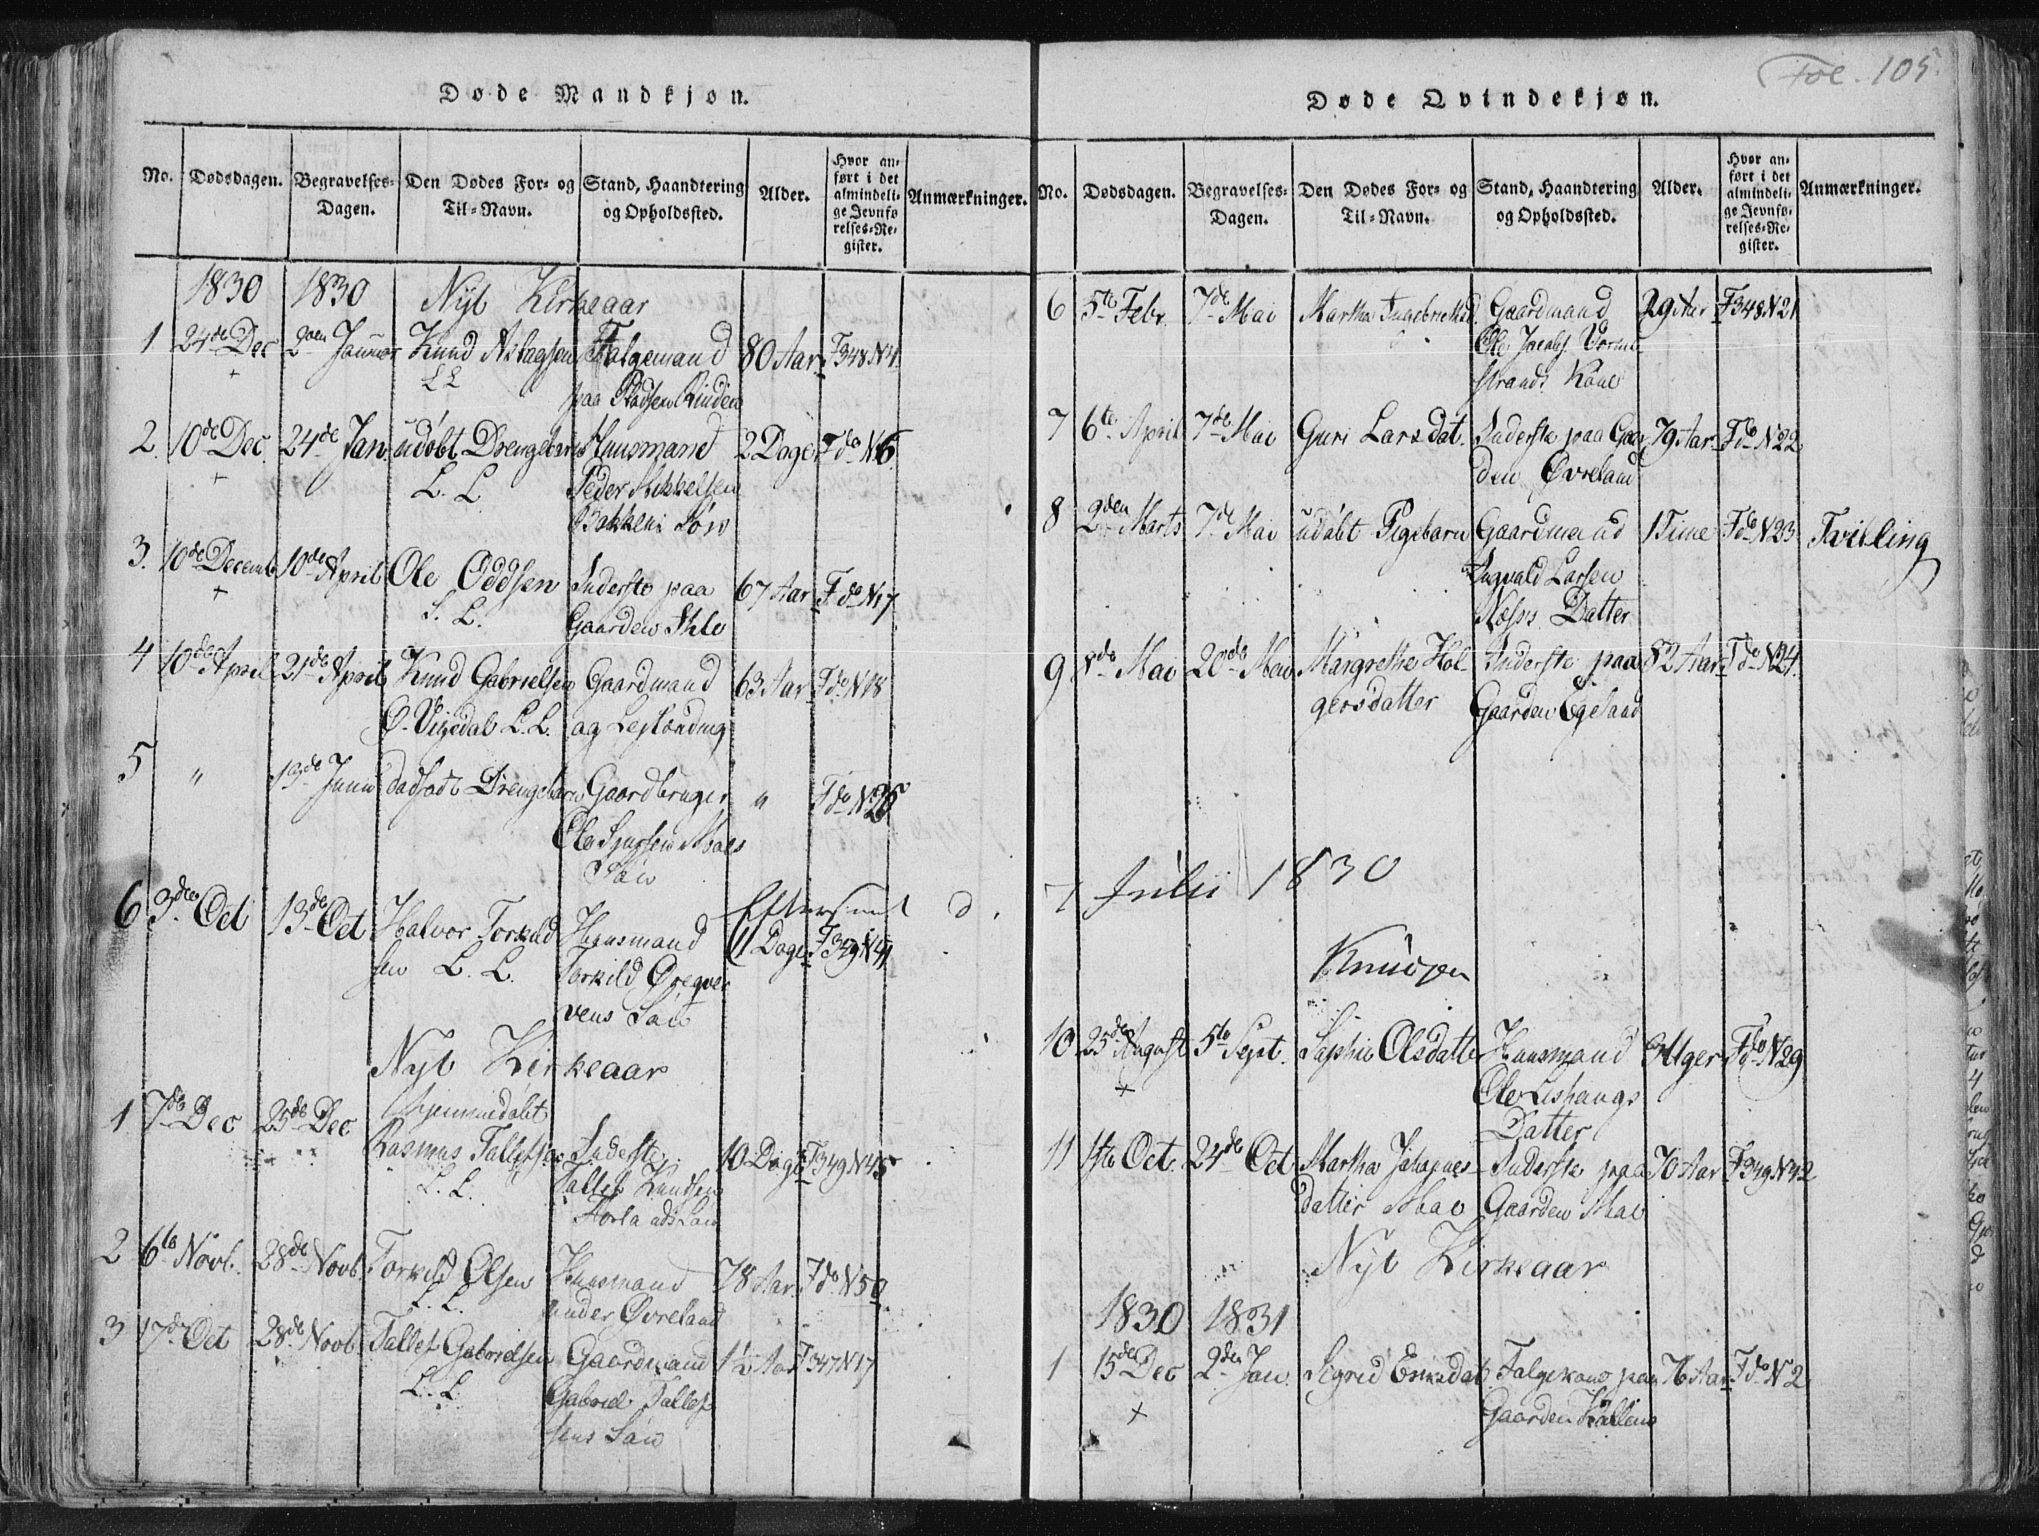 Døde Mandkjøn.
No.
Dødsdagen.
Begravelses-
Dagen.
Den Dødes For- og
Til-Navn.
Stand, Haandtering
og Opholdssted.
Alder.
Hvor an-
ført i det
almindeli-
ge Jevnfø-
relses-Re-
gister.
Anmærkninger.
1830 1830 Nyt Kirkeaar
1 24de Dec 2den Januar Knud Aslagsen Falgemand 80 Aar F348N4.
+ L L paa Pladsen Rinden
2. 10de Dec. 24de Jan udøbt Drengebarn Huusmand 2 Dage Fdo N6.
+ L. L Peder Mikkelsen
Bakkens Søn
3. 10de Decemb 10de April Ole Oddsen Inderste paa 67 Aar Fdo N17.
+ S. L. Gaarden
4 10de April 21de April Knud Gabrielsen Gaardmand 63 Aar Fdo N18
L. L. og
5 " 13de Junii dødfødt Drengebarn Gaardbruger " Fdo N25
Ole Moes
Søn
6 3den Oct 13de Oct Halvor Torkild Huusmand 11 Dage F349N41
sen L. L. Torkild
vens Søn
Efterseet d.
Nyt Kirkeaar
hjemmedøbt
1 7de Dec 25de Dec Rasmus Tallefsen Inderste 10 Dage F349N45
L. L. Tallef Knudsen
Søn
2 6te Novb. 28de Novb. Torkild Olsen Huusmand 78 Aar Fdo N50
L. L. under Øvreland
3 17de Oct 28de Novb Tallef Gabrielsen Gaardmand 1½ Aar F347N17
L. L. Gabriel Tallef
sens Søn
Fol. 105
Døde Qvindekjøn.
No.
Dødsdagen.
Begravelses-
Dagen.
Den Dødes For- og
Til-Navn.
Stand, Haandtering
og Opholdssted.
Alder.
Hvor an-
ført i det
almindeli-
ge Jevnfø-
relses-Re-
gister.
Anmærkninger.
6 5te Febr. 7de Mai Martha Ingebrethsd. Gaardmand 29 Aar F348N21
Ole Jacobs.
strands Kone
7 6te April 7de Mai Guri Larsdat. Inderste paa Gaar 79 Aar Fdo N22
den Øvreland
8 2den Marts 7de Mai udøbt Pigebarn Gaardmand 1 Time Fdo N23 Tvilling
Ingvald Larsen
Datter
9 8de Mai 20de Mai Margrethe Hol- Inderste paa 82 Aar Fdo N24.
gersdatter Gaarden Egeland
7 Julii 1830
Knudsen
10 25de August 5te Sept. Sophie Olsdatter Huusmand Uger Fdo N29
+ Ole
Datter
11 Oct. 24de Oct Martha Johannes- Inderste paa 70 Aar F349N42
datter Moe Gaarden Moe
Nyt Kirkeaar
1830 1831
1 15de Dec 2den Jan Sigrid Falgekone paa 76 Aar Fdo N2
+ Gaarden